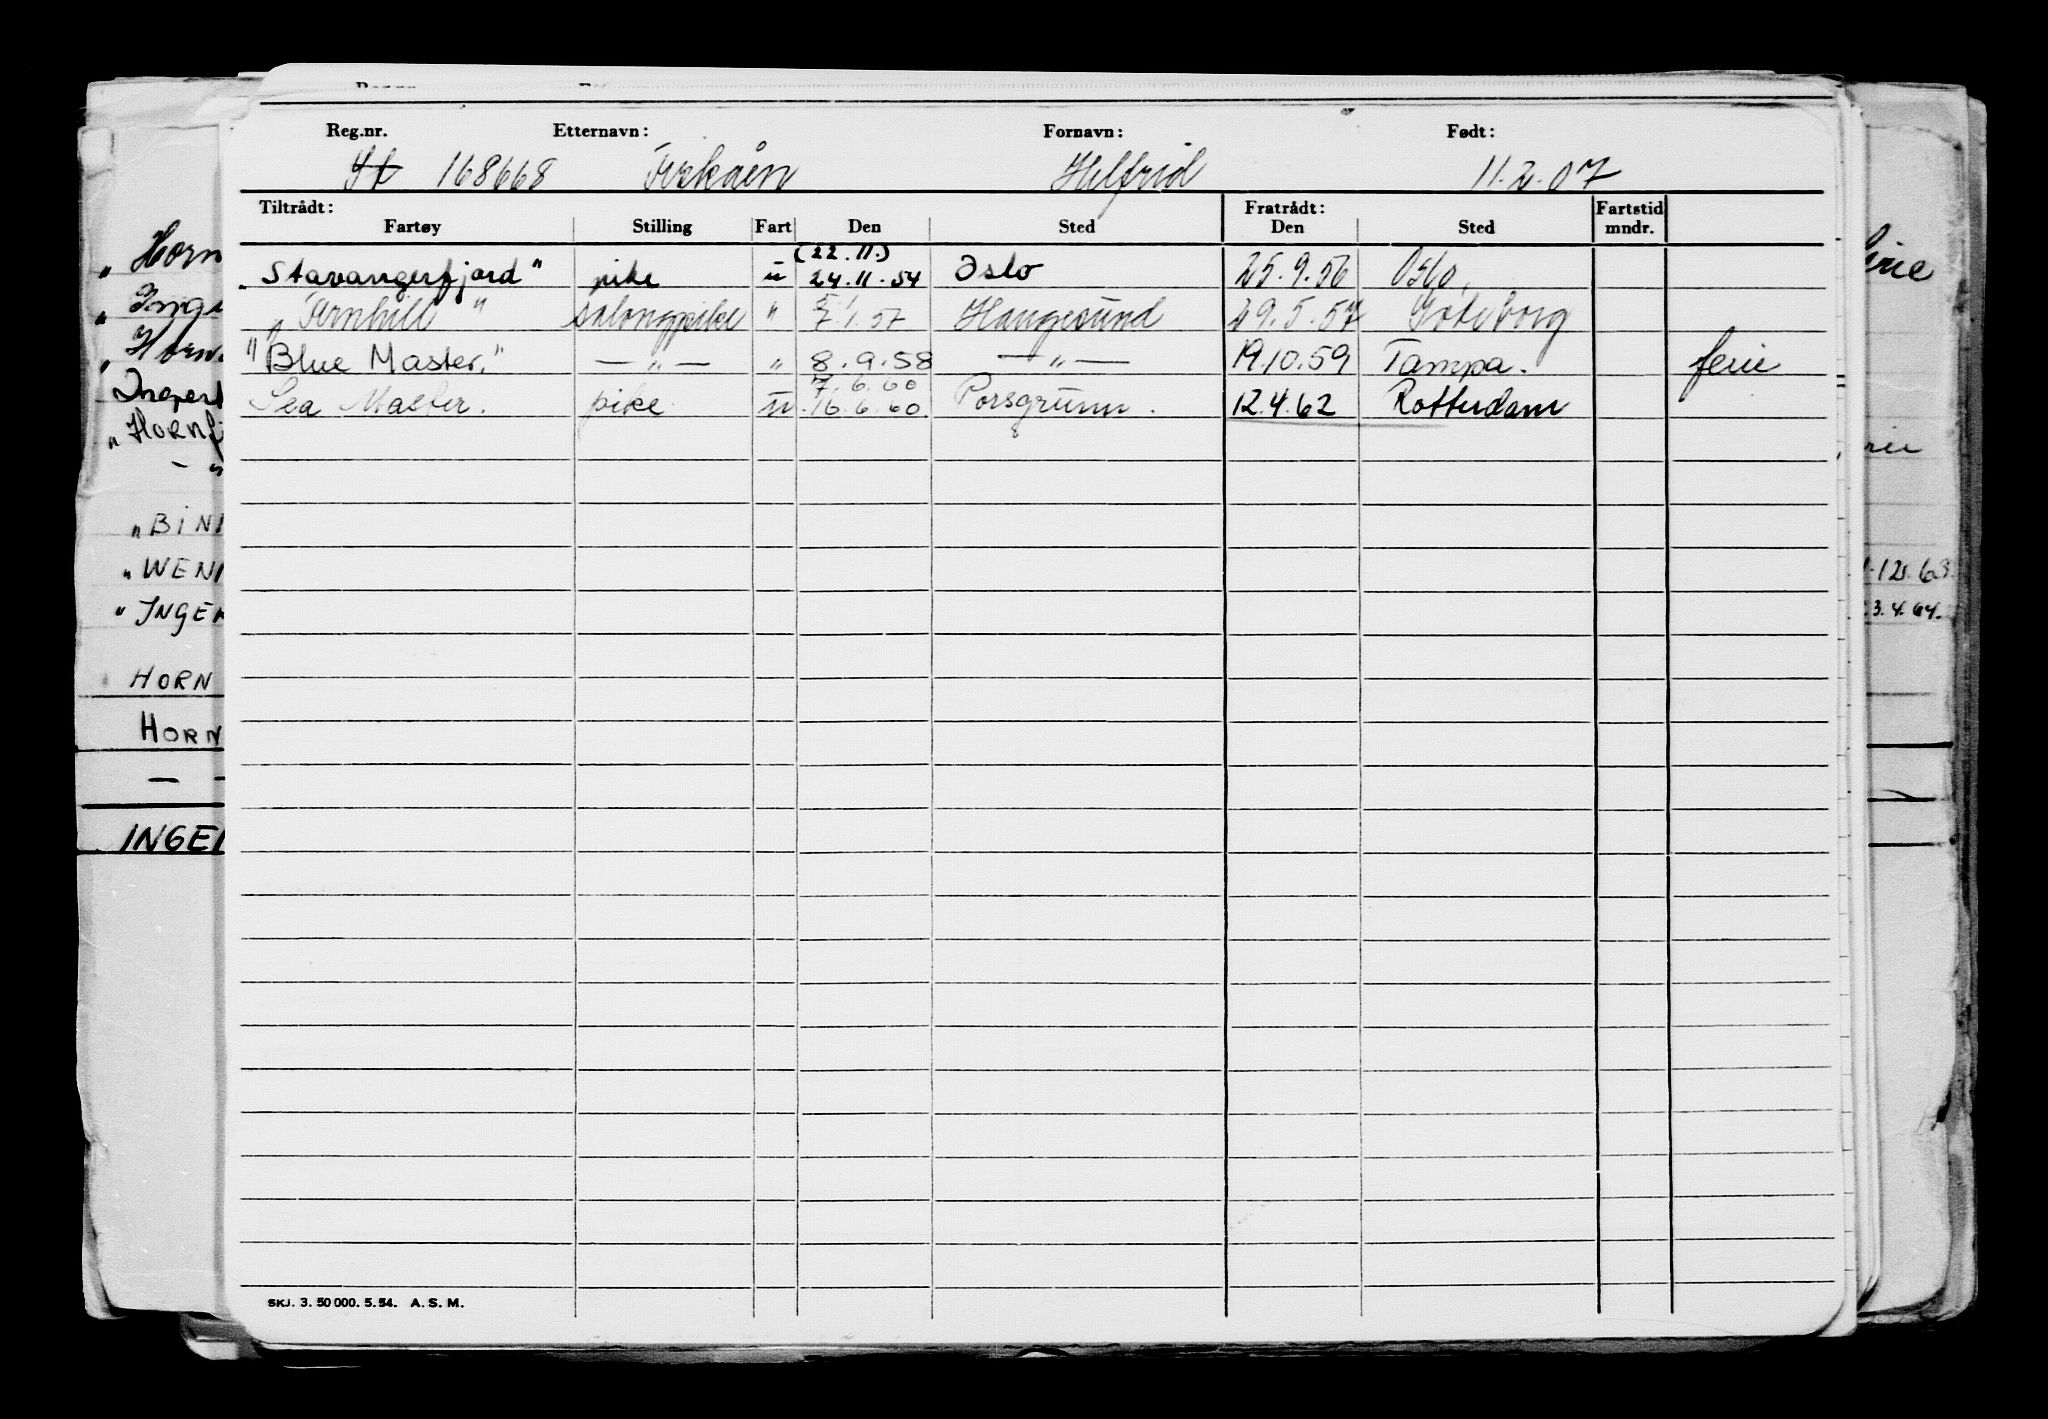 Reg.nr. Etternavn: Fornavn: Født:
168668 Helfrid 11.2.07
Tiltrådt: Fratrådt: Fartstid
Fartøy Stilling Fart Den Sted Den Sted mndr.
(22.11.)
"Stavangerfjord" pike u 24.11.54 Oslo 25.9.56 Oslo,
"Fernhill" salongpike " 7.1.57 Haugesund 29.5.57 Göteborg
"Blue Master." — " — " 8.9.58 — " — 19.10.59 Tampa. ferie
7.6.60
Sea Master. pike u. 16.6.60. Porsgrunn. 12.4.62 Rotterdam
SKJ. 3. 50 000. 5. 54. A. S. M.
" Horn
" Inge
" Horn
Ingert
" HORNf
— "
" BIN
" WEN
" INGER
HORN
HORN
—
INGE
erie
rie
12.63
3.4.64.